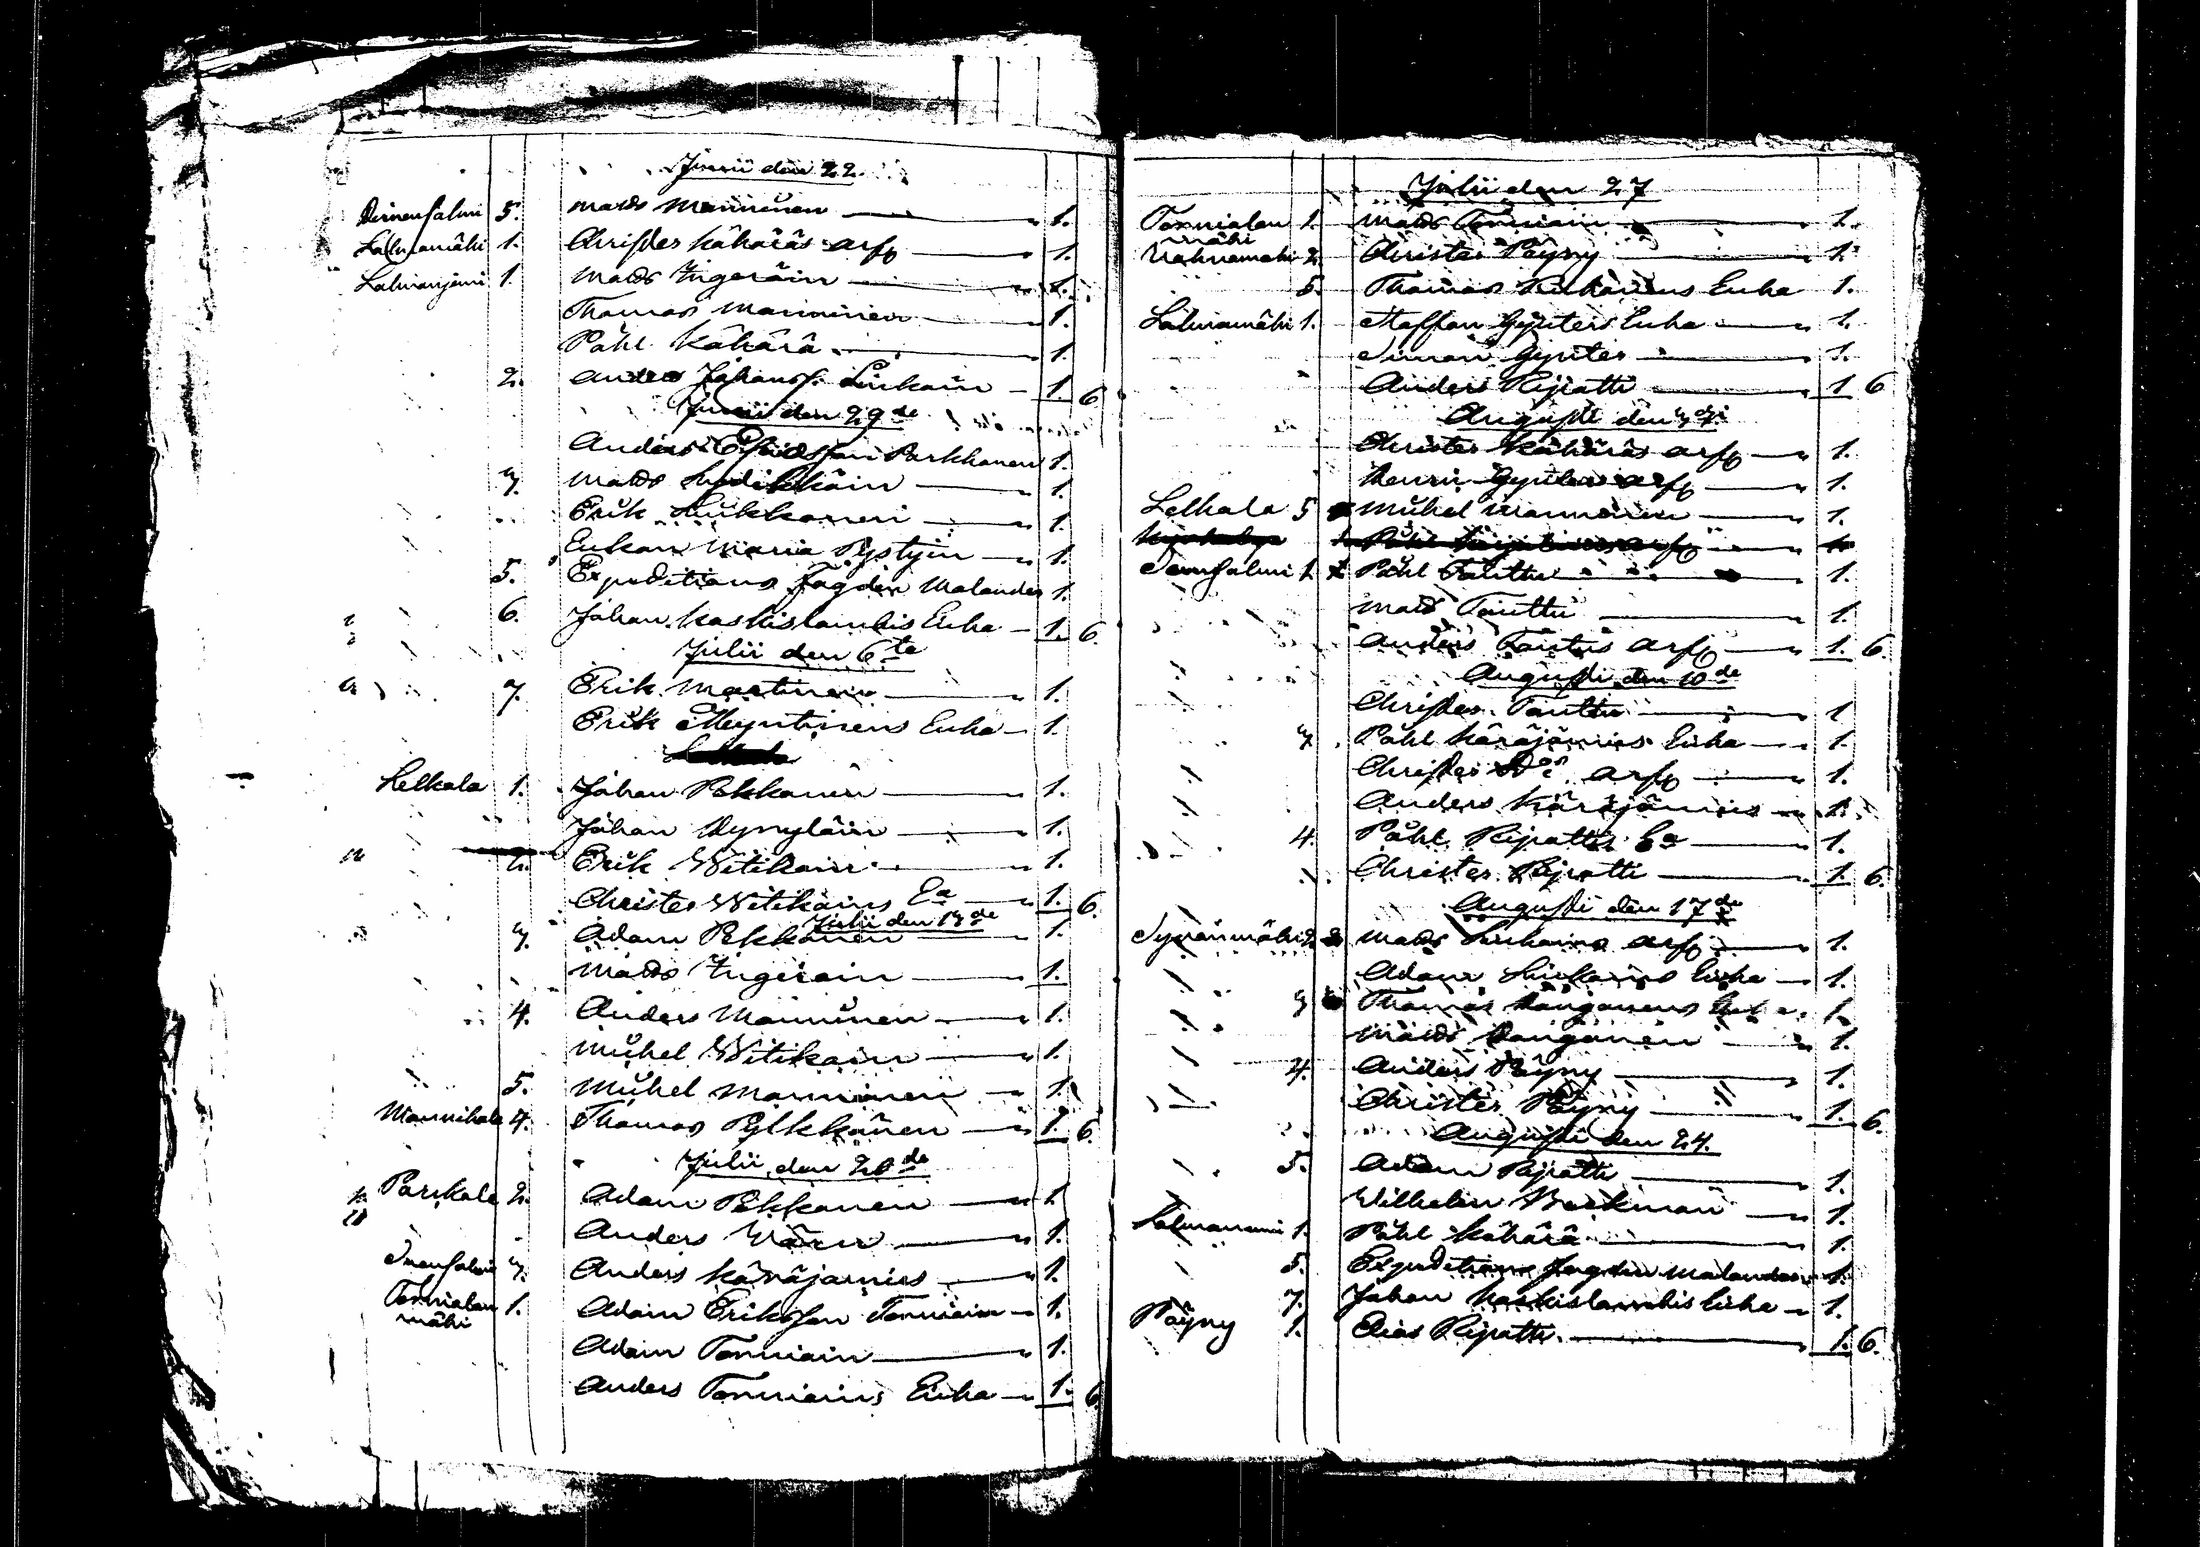 Junii den 22.
5. Mads Manninen 1.
1. Christer Kähäräs arfg 1.
1. Mads Ingeräin 1.
Thomas Manninen 1.
Påhl Kähärä 1.
2. Anders Johansf. Liukain 1. 6
Junii den 29de
Anders Parkkanen 1.
3. Mads 1.
Erik Liukkonen 1.
Enkan Maria Pystyin 1.
5. Expeditions Fogden Malander 1.
6. Johan Kaskislambis Enka 1. 6
Julii den 6te
7. Erik Martinen 1.
Erik Myntinens Enka 1.
Lelkala 1. Johan Pekkanen 1.
Johan Hynyläin 1.
2. Erik Witikain 1.
Christer Witikains Ea 1. 6.
Julii den 13de
3. Adam Pekkanen 1.
Mads Ingerain 1.
4. Anders Manninen 1.
Michel Witikain 1.
5. Michel Manninen 1.
Mannikala 4. Thomas Pylkkänen 1. 6.
Julii den 20de
Parikala 2. Adam Pekkanen 1
Anders 1.
3. Anders Käräjämies 1.
Tonnialan
mäki 1. Adam Eriksson Tonniain 1.
Adam Tonniain 1.
Anders Tonniains Enka 1. 6
Julii den 27
Tonnialan
mäki 1. Mads Tonniain 1.
2. Christer Päyny 1.
5. Thomas Enka 1.
1. Staffan Gynters Enka 1.
Simon Gynter 1.
Anders Ripatti 1 6
Augusti den 3die
Christer Kähäräs arfg 1.
Henric Gynters arfg 1.
Lelkala 5 Michel Manninen 1.
1 Påhl Tanttu 1.
Mads Tanttu 1.
Anders Tantus arfg 1. 6.
Augusti den 10de
Christer Tanttu 1
3. Påhl Käräjämies Enka 1.
Christer Dos arfg 1.
Anders Käräjämies 1.
4. Påhl Ripattis Ea 1.
Christer Ripatti 1. 6.
Augusti den 17de
2 Mads Liukains arfg 1.
Adam Liukains Enka 1.
3 Thomas Kanganens Enka 1.
Mads Kanganen 1.
4. Anders Päyny 1.
Christer Päyny 1. 6.
Augusti den 24.
5. Adam Ripatti 1.
Wilhelm Beckman 1.
1. Påhl Kähärä 1.
5. Expeditions Fogden Malander 1.
7. Johan Kaskislambis Enka 1.
Päyny 1. Elias Ripatti 1. 6.